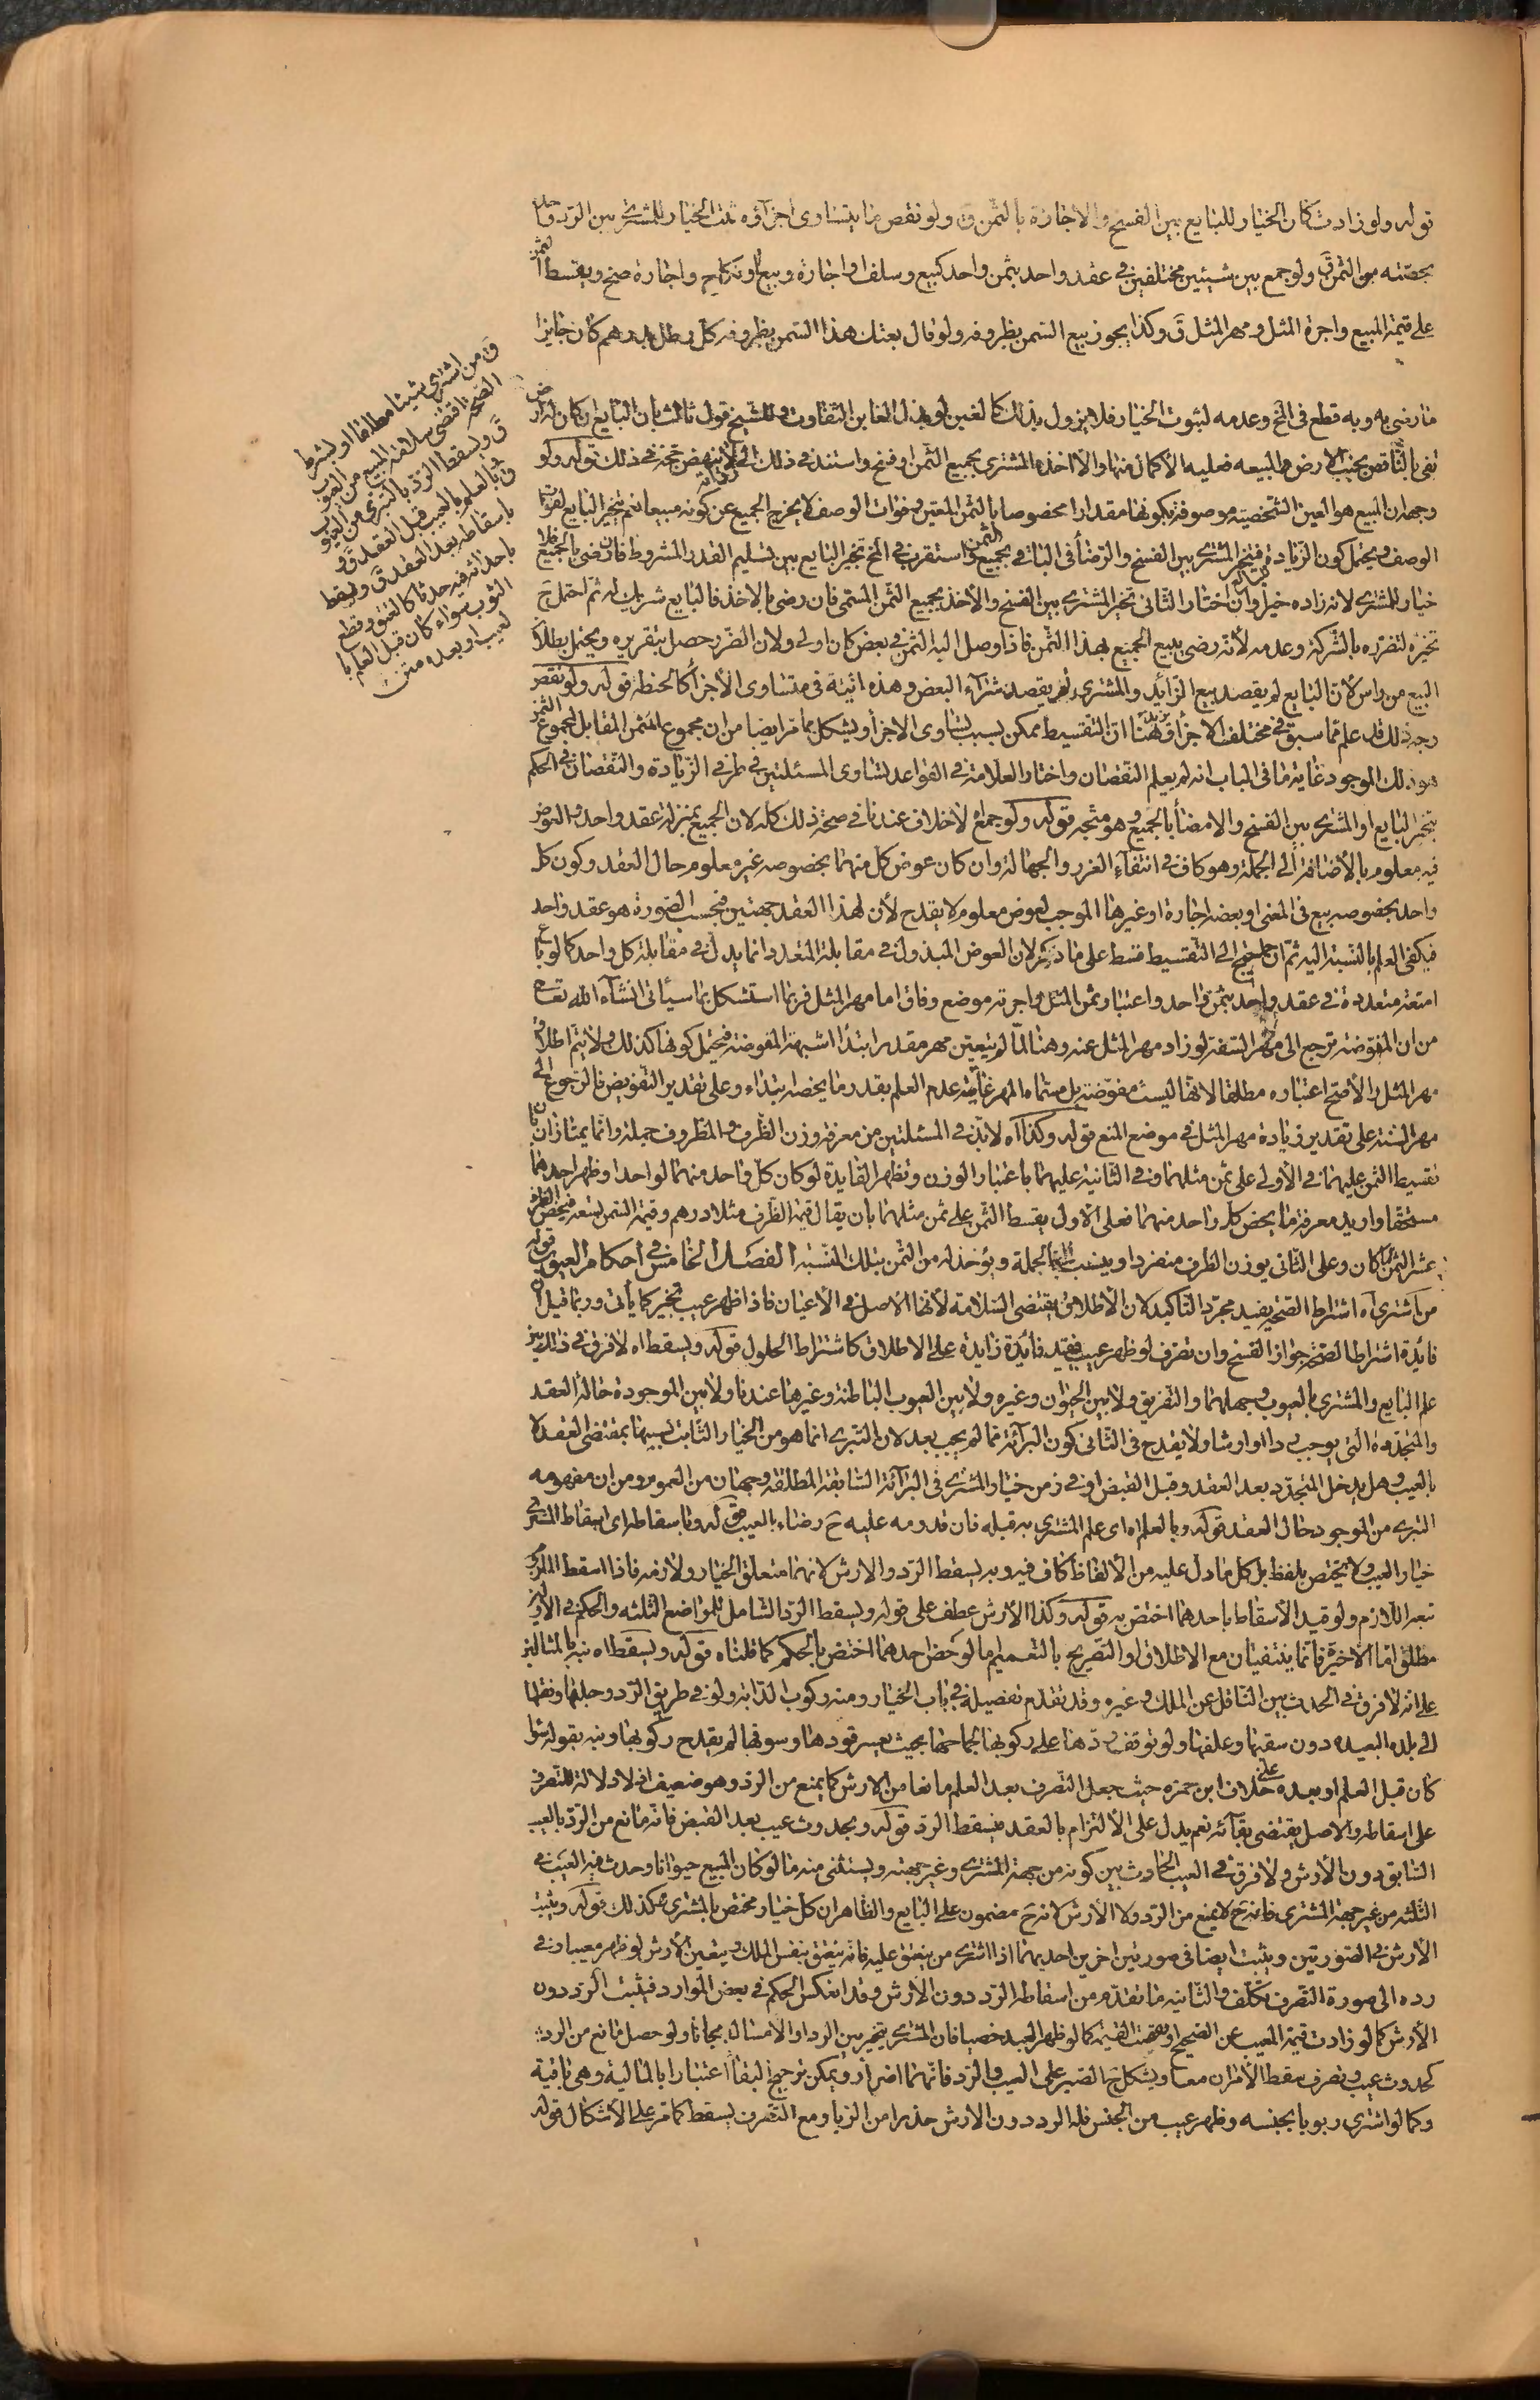 قوله ولو زادت كان الخيار للبايع بين الفسخ والاجازة بالثمن ق ولو نقص ما يتساوى اجزآؤه ثبت الخيار للمشترى بين الرد واخذه
بحصته من الثمن ق ولو جمع بين شيئين مختلفين فى عقد واحد بثمن واحد كبيع وسلف او اجارة وبيع او نكاح واجارة صح ويقسط الثمن
على قيمة المبيع واجرة المثل ومهر المثل ق وكذا يجوز بيع السمن بظروفه ولو قال بعتك هذا السمن بظروفه كل رطل بدرهم كان جايزا
ق من اشترى شيئا مطلقا او بشرط
الصحة اقتضى سلامة المبيع من العيوب
ق ويسقط الرد بالتبرى من العيوب
ق وبالعلم بالعيب قبل العقد ق و
باسقاطه بعد العقد ق ويسقط
باحداثه فيه حدثا كالعتق وقطع
الثوب سواء كان قبل العلم با
لعيب او بعده متن
ما رضى به وبه قطع فى الخ وعدمه لثبوت الخيار فلا يزول بذلك كالغبن لو بذل الغابن التفاوت وللشيخ قول ثالث بان البايع ان كان له ارض
تفى بالناقص بجنب الارض المبيعه فعليه الاكمال منها والا اخذه المشترى بجميع الثمن او فسخ واستند فى ذلك الى رواية لا تنهض حجة فى ذلك قوله ولو
وجه ان المبيع هو العين الشخصيه موصوفة بكونها مقدارا مخصوصا بالثمن المعين وفوات الوصف لا يخرج الجميع عن كونه مبيعا نعم يتخير البايع لفوات
الوصف ويحتمل كون الزيادة للبايع فيتخير المشترى بين الفسخ والرضا فى الباقى بجميع الثمن واستقرب فى الخ تخير البايع بين تسليم القدر المشروط فان رضى بالجميع فلا
خيار للمشترى لانه زاده خيرا وان اختار الثانى تخير المشترى بين الفسخ والاخذ بجميع الثمن المسمى فان رضى بالاخذ فالبايع شريك له ثم احتمل ح
تخيره لتضرره بالشركة وعدمه لانه رضى ببيع الجميع بهذا الثمن فاذا وصل اليه الثمن فى بعض كان اولى ولان الضرر حصل بتقريره ويحتمل بطلان
البيع من راس لان البايع لم يقصد بيع الزائد والمشترى لم يقصد شرآء البعض وهذه اتية فى متساوى الاجزاء كالحنطة قوله ولو نقص
وجه ذلك قد علم مما سبق فى مختلف الاجزاء ويزيد هنا ان التقسيط ممكن بسبب تساوى الاجزاء ويشكل بما مر ايضا من ان مجموع الثمن المقابل لمجموع المثمن
هو ذلك الموجود غاية ما فى الباب انه لم يعلم النقصان واختار العلامة فى القواعد تساوى المسئلتين فى طرفى الزيادة والنقصان فى الحكم
بتخير البايع او المشترى بين الفسخ والامضاء بالجميع وهو متجه قوله ولو جمع اه لا خلاف عندنا فى صحة ذلك كله لان الجميع بمنزلة عقد واحد والعوض
فيه معلوم بالاضافة الى الجملة وهو كاف فى انتفآء الغرر والجهالة وان كان عوض كل منهما بخصوصه غير معلوم حال العقد وكون كل
واحد بخصوصه بيع فى المعنى او بعضه اجارة او غيرها الموجب لعوض معلوم لا يقدح لان لهذا العقد جهتين فبحسب الصورة هو عقد واحد
فيكفى العلم بالنسبة اليه ثم ان احتيج الى التقسيط قسط على ما ذكر لان العوض المبذول فى مقابلة المتعدد انما بذل فى مقابلة كل واحد كما لو باع
امتعة متعددة فى عقد واحد بثمن واحد واعتبار ثمن المثل واجرته موضع وفاق اما مهر المثل فربما استشكل بما سيأتى انشآء الله تعالى
من ان المفوضة ترجع الى مهر السنة لو زاد مهر المثل عنه وهنا لما لم يتعين مهر مقدر ابتداء اشبهت المفوضة فيحتمل كونها كذلك ولا يتم اطلاق
مهر المثل والاصح اعتباره مطلقا لانها ليست مفوضة بل مسماه المهر غايته عدم العلم بقدر ما يخصه ابتداء وعلى تقدير التفويض فالرجوع الى
مهر السنة على تقدير زيادة مهر المثل فى موضع المنع قوله وكذا اه لا بد فى المسئلتين من معرفة وزن الظرف والمظروف جملة وانما يمتازان بان
تقسيط الثمن عليهما فى الاولى على ثمن مثلهما وفى الثانية عليهما باعتبار الوزن وتظهر الفايدة لو كان كل واحد منهما لواحد او ظهر احدهما
مستحقا واريد معرفة ما يخص كل واحد منهما فعلى الاول يقسط الثمن على ثمن مثلهما بان يقال قيمة الظرف مثلا درهم وقيمة السمن تسعة فيخص الظرف
عشر الثمن كما كان وعلى الثانى يوزن الظرف منفردا وينسب الى الجملة ويؤخذ له من الثمن بتلك النسبة الفصل الخامس فى احكام العيوب قوله
من اشترى اه اشتراط الصحة يفيد مجرد التاكيد لان الاطلاق يقتضى السلامة لانها الاصل فى الاعيان فاذا ظهر عيب تخير كما يأتى وربما قيل ان
فائدة اشتراط الصحة جواز الفسخ وان تصرف لو ظهر عيب فيفيد فائدة زايدة على الاطلاق كاشتراط الحلول قوله ويسقط اه لا فرق فى ذلك بين
علم البايع والمشترى بالعيوب وجهلهما والتفريق ولا بين الحيوان وغيره ولا بين العيوب الباطنة وغيرها عندنا ولا بين الموجودة حالة العقد
والمتجددة التى يوجب ردا او ارشا ولا يقدح فى الثانى كون البرآئة مما لم يجب بعد لان التبرى انما هو من الخيار الثابت بسببها بمقتضى العقد لا
بالعيب وهل يدخل المتجدد بعد العقد وقبل القبض او فى زمن خيار المشترى فى البرآئة السابقة المطلقة وجهان من العموم ومن ان مفهومه
التبرى من الموجود حال العقد قوله وبالعلم اه اى علم المشترى به قبله فان قدومه عليه ح رضاء بالعيب قوله وباسقاطه اى اسقاط المشترى
خيار العيب ولا يختص بلفظ بل كل ما دل عليه من الالفاظ كاف فيه وبه يسقط الرد والارش لانهما متعلق الخيار ولازمه فاذا اسقط الملزوم
تبعه اللازم ولو قيد الاسقاط باحدهما اختص به قوله وكذا الارش عطف على قوله ويسقط الرد الشامل للمواضع الثلثه والحكم فى الاولين
مطلق اما الاخير فانما ينتفيان مع الاطلاق او التصريح بالتعميم اما لو خص احدهما اختص بالحكم كما قلناه قوله ويسقط اه نبه بالمثالين
على انه لا فرق فى الحدث بين الناقل عن الملك وغيره وقد تقدم تفصيله فى باب الخيار ومنه ركوب الدابة ولو فى طريق الرد وحلبها ونقلها
الى بلده البعيده دون سقيها وعلفها ولو توقف ردها على ركوبها لجماحها بحيث يعسر قودها وسوقها لم يقدح ركوبها ونبه بقوله سواء
كان قبل العلم او بعده على خلاف ابن حمزه حيث جعل التصرف بعد العلم مانعا من الارش كما يمنع من الرد وهو ضعيف اذ لا دلالة للتصرف
على اسقاطه والاصل يقتضى بقآئه نعم يدل على الالتزام بالعقد فيسقط الرد قوله وبحدوث عيب بعد القبض فانه مانع من الرد بالعيب
السابق دون الارش ولا فرق فى العيب الحادث بين كونه من جهة المشترى وغير جهته ويستثنى منه ما لو كان المبيع حيوانا وحدث فيه العيب فى
الثلثه من غير جهة المشترى فانه ح لا يمنع من الرد ولا الارش لانه ح مضمون على البايع والظاهر ان كل خيار مختص بالمشترى كذلك قوله ويثبت
الارش فى الصورتين ويثبت ايضا فى صورتين اخريين احديهما اذا اشترى من ينعتق عليه فانه ينعتق بنفس الملك ويتعين الارش لو ظهر معيبا وفى
رده الى صورة التصرف تكلف والثانيه ما تقدم من اسقاط الرد دون الارش وقد انعكس الحكم فى بعض الموارد فيثبت الرد دون
الارش كما لو زادت قيمة المعيب عن الصحيح او نقصت القيمة كما لو ظهر العبد خصيا فان المشترى يتخير بين الرد او الامساك مجانا ولو حصل مانع من الرد
كحدوث عيب وتصرف سقط الامران معا ويشكل ح الصبر على العيب والرد فانهما اضرار ويمكن ترجيح البقاء اعتبارا بالمالية وهى باقية
وكما لو اشترى ربويا بجنسه وظهر عيب من الجنس فله الرد دون الارش حذرا من الربا ومع التصرف يسقط كما مر على الاشكال قوله